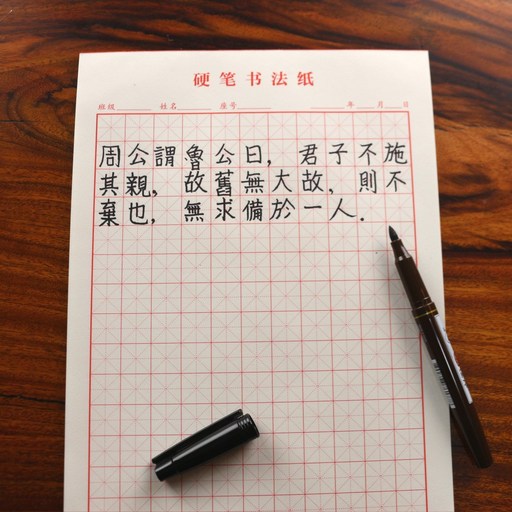 硬笔书法纸
班级 姓名 座号 年 月 日
周公謂魯公日，君子不施
其親，故舊無大故，則不
棄也，無求備於一人．